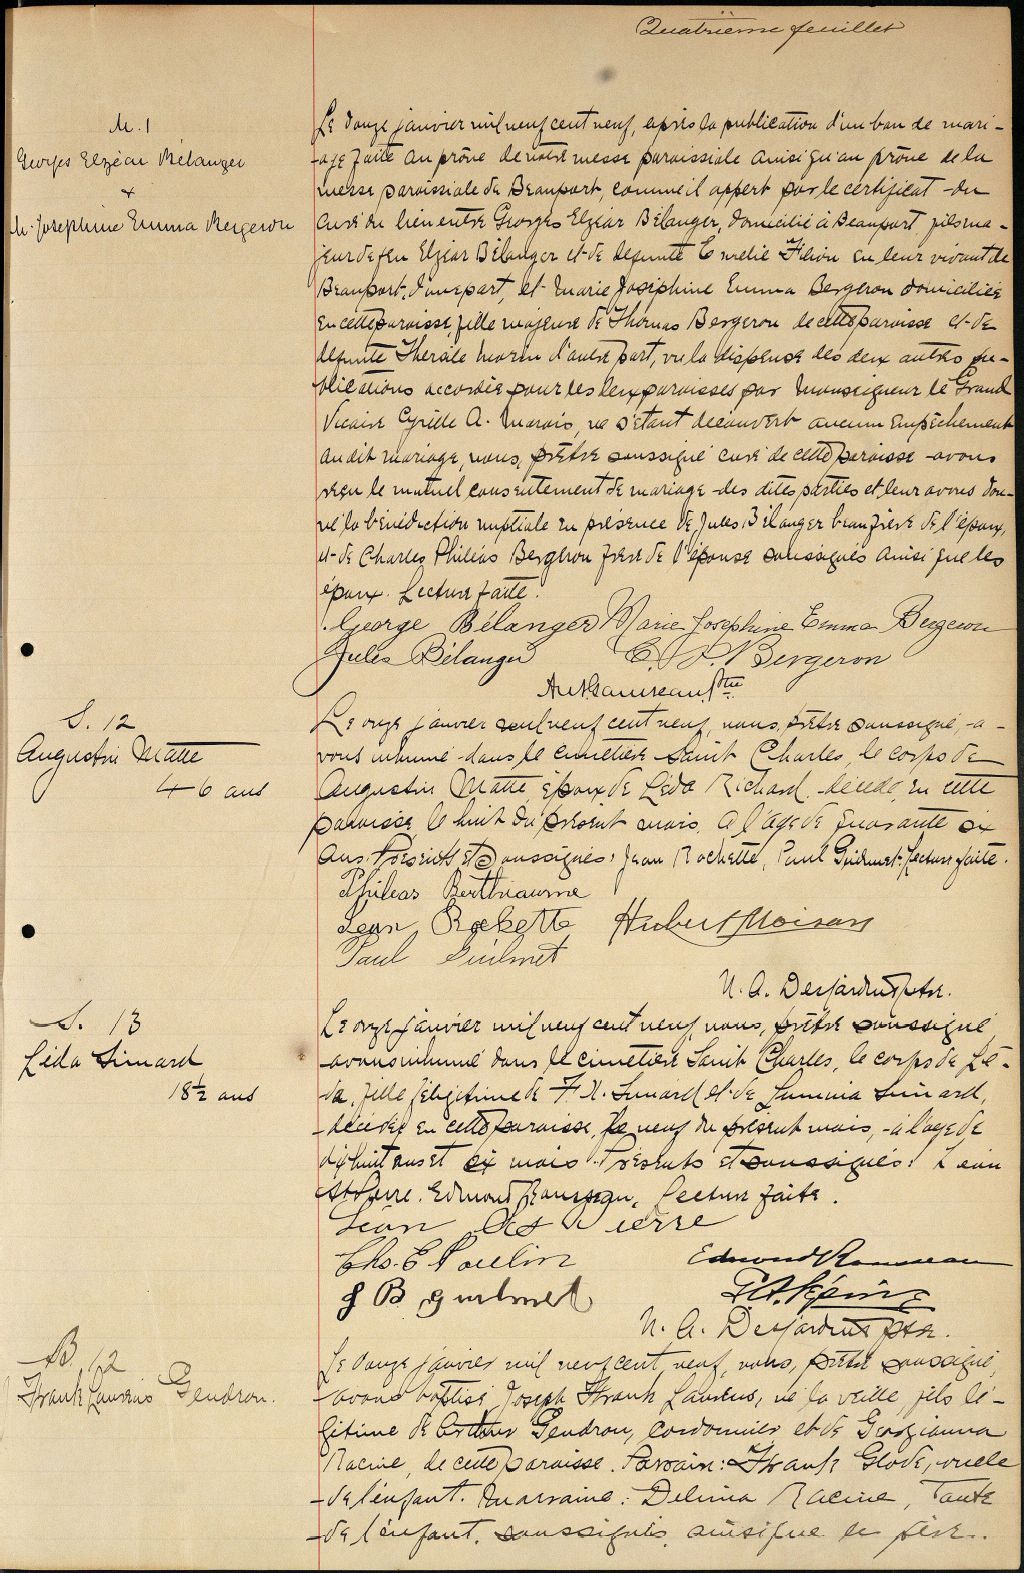 Quatrième feuillet
M. 1
Georges Elzéar Bélanger
+
M. Josephine Emma Bergeron
Le douze janvier mil neuf cent neuf, après la publication d'un ban de mari-
age faite au prône de notre messe paroissiale ainsi qu'au prône de la
messe paroissiale de Beauport, comme il appert par le certificat du
curé du lieu entre Georges Elzéar Bélanger, domicilié à Beauport, fils ma-
jeur de feu Elzéar Bélanger et de défunte Emelie Filion en leur vivant de
Beauport, d'une part, et Marie Josephine Emma Bergeron domiciliée
en cette paroisse, fille majeure de Thomas Bergeron de cette paroisse et de
défunte Thersile Morin d'autre part, vu la dispense des deux autres pu-
blications accordée pour les deux paroisses par Monseigneur le Grand
Vicaire Cyrille A. Marois, ne s'étant découvert aucun empêchement
au dit mariage, nous, prêtre soussigné curé de cette paroisse avons
reçu le mutuel consentement de mariage des dites parties et leur avons don-
né la bénédiction nuptiale en présence de Jules Bélanger beau frère de l'époux,
et de Charles Philéas Bergeron frère de l'épouse soussignés ainsi que les
époux. Lecture faite.
George Bélanger Marie Josephine Emma Bergeron
Jules Bélanger C. P. Bergeron
Ptre
S. 12
Augustin Matte
46 ans
Le onze janvier mil neuf cent neuf, nous, prêtre soussigné, a-
vons inhumé dans le cimetière Saint Charles, le corps de
Augustin Matte, époux de Léda Richard, décédé, en cette
paroisse, le huit du présent mois, à l'age de quarante six
ans. Présents et soussignés: Jean Rochette, Paul Guilmet. Lecture faite.
Philéas Berthiaume
Jean Rochette Hubert Moisan
Paul Guilmet
N. A. Desjardins ptre.
S. 13
Léda Simard
18½ ans
Le onze janvier mil neuf cent neuf, nous, prêtre soussigné
avons inhumé dans le cimetière Saint Charles, le corps de Lé-
da, fille légitime de F. X. Simard et de Simard,
décédée en cette paroisse, le neuf du présent mois, à l'age de
dix huit ans et six mois. Présents et soussignés: Léon
St Pierre. Edmond Rousseau, Lecture faite.
Léon St Pierre
Chs. E Poulin Edmond Rousseau
J B guilmet
N. A. Desjardins ptre.
B. 12
Frank Laurens Gendron.
Le douze janvier mil neuf cent neuf, nous, prêtre soussigné,
avons baptisé Joseph Frank Laurens, né la veille, fils lé-
gitime de Arthur Gendron, cordonnier et de Georgianna
Racine, de cette paroisse. Parrain: Frank Glode, oncle
de l'enfant. Marraine: Delima Racine, Tante
de l'enfant, soussignés, ainsi que le père.